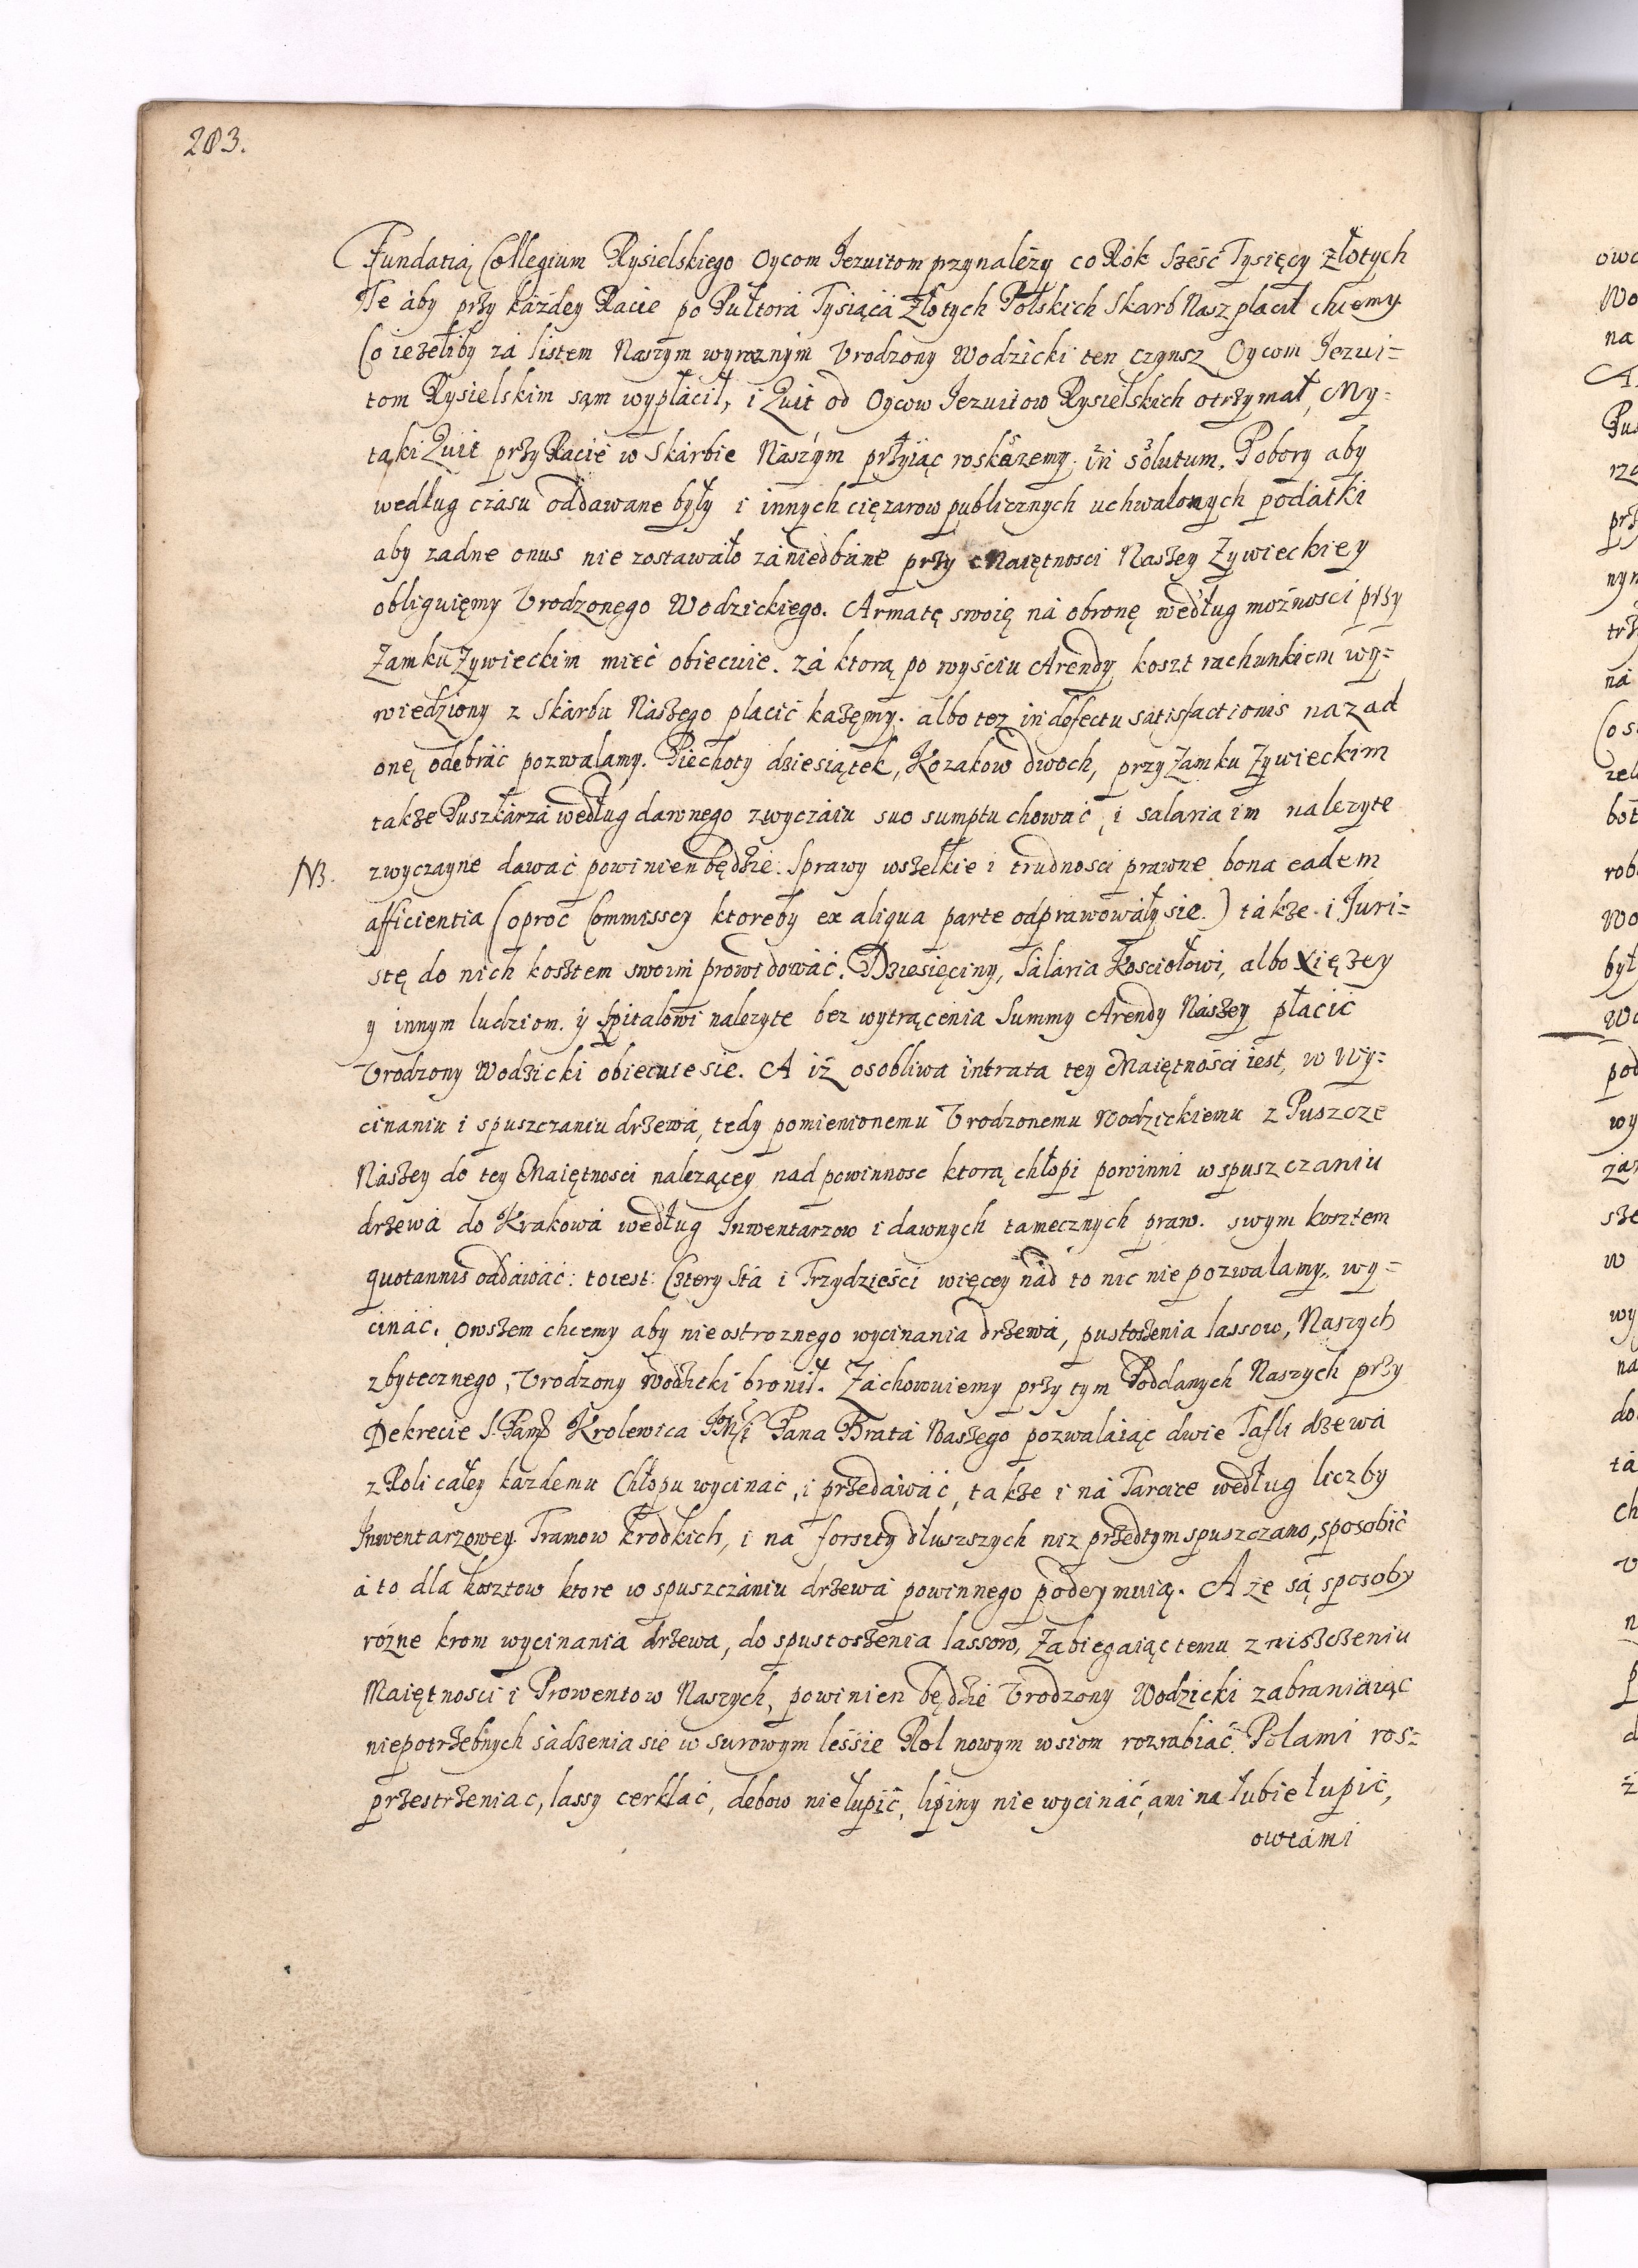 203.
Fundatią Collegium Rysielskiego Oycom Jezuitom przynależy co Rok Sześć Tysięcy złotych
Te aby przy każdey Racie po Pułtora Tysiąca Złotych Polskich Skarb Nasz płacił chcemy
Co ieżeliby za listem Naszym wyraznym Vrodzony Wodzicki ten czynsz Oycom Jezui=
tom Rysielskim sąm wypłacił, i Quit od Oycow Jezuitow Rysielskich otrzymał, My=
taki Quit przy Racie w Skarbie Naszym przyiąc roskażemy in solutum. Pobory aby
według czasu oddawane były i innych ciężarow publicznych uchwalonych podatki
aby zadne onus nie zostawało zaniedbane przy Maiętnosci Naszey Zywieckiey
obliguięmy Vrodzonego Wodzickiego. Armatę swoię na obronę według możności przy
Zamku Zywieckim mieć obiecuie. zá ktorą po wyściu Arendy koszt rachunkiem wy=
wiedziony z Skarbu Naszego placić każęmy. albo tez in defectu satisfactionis nazad
onę odebrać pozwalamy. Piechoty dziesiątek, Kozakow dwoch, przy Zamku Zywieckim
także Puszkarza według dawnego zwyczaiu suo sumptu chować, i salaria im nalezyte
NB. zwyczayne dawać powinien będzie. Sprawy wszelkie i trudnosci prawne bona eadem
afficientia (oproc Commissey ktoreby ex aliqua parte odprawowały sie.) także i Juri=
stę do nich kosztem swoim prowidować. Dziesięciny, Salaria Kosciołowi, albo Xięzey
y innym ludziom. ÿ Szpitalowi nalezyte bez wytrącenia Summy Arendy Naszey płacić
Vrodzony Wodzicki obiecuie sie. A iż osobliwa intrata tey Maiętności iest, w wy=
cinaniu i spuszczaniu drzewa, tedy pomienionemu Vrodzonemu Wodzickiemu z Puszcze
Naszey do tey Maiętnosci nalezącey nad powinnosc ktorą chłopi powinni w spuszczaniu
drzewa do Krakowa według Inwentarzow i dawnych tamecznych praw. swym kosztem
quotannis oddawać: to iest: Cztery Sta i Trzydzieści więcey nád to nic nie pozwalamy. wy=
cináć. Owszem chcemy aby nieostroznego wycinania drzewa, pustoszenia lassow, Naszych
zbytecznego, Vrodzony Wodzicki bronił. Zachowuiemy przy tym Poddanych Naszych przy
Dekrecie S. Pamp Krolewica JMśći Pana Brata Naszego pozwalaiąc dwie Tafli drzewa
z Roli całey kazdemu Chłopu wycinać, i przedawać, także i na Tarcice według liczby
Inwentarzowey Tramow krodkich, i na forszty dłuszszych niz przedtym spuszczano, sposobić
á to dla kosztow ktore w spuszczaniu drzewa powinnego podeymuią. A ze są sposoby
różne krom wycinania drzewa, do spustoszenia lassow, Zabiegaiąc temu zniszczeniu
Maiętnosci i Prowentow Naszych, powinien będzie Vrodzony Wodzicki zabraniaiąc
niepotrzebnych sadzenia sie w surowym lessie Rol nowym wsiom rozrabiać. Polami ros=
przestrzeniac, lassy cerklać, debow nie łupić, lipiny nie wycinać, ani na łubie łupić,
owcami